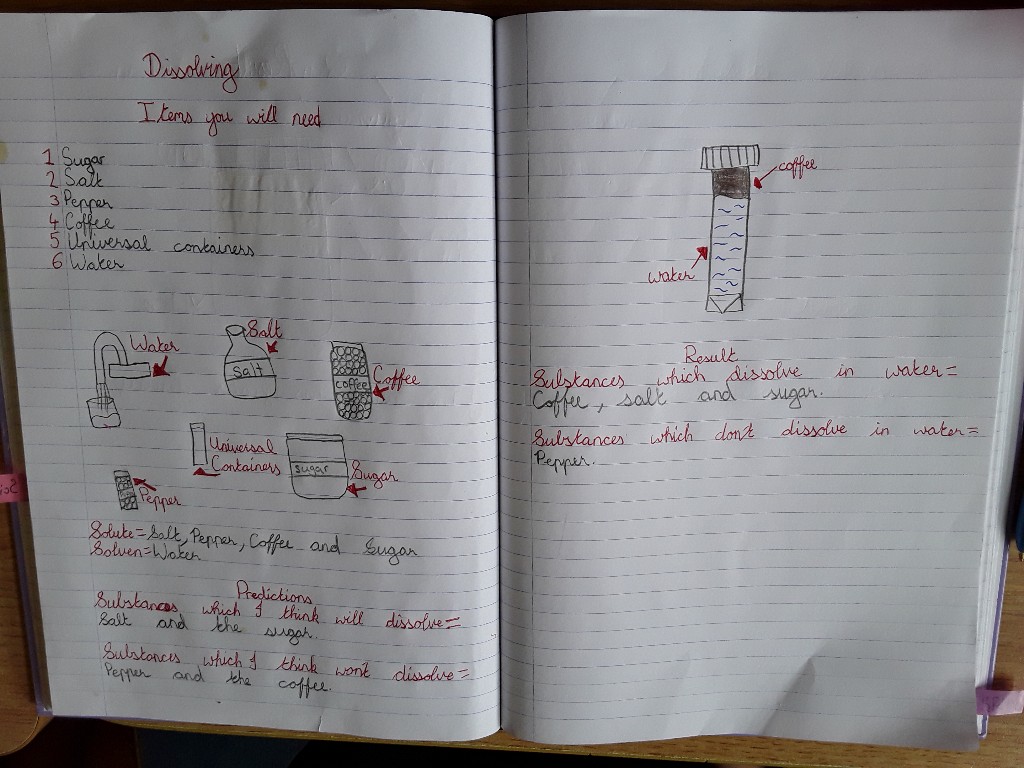 Dissolving
Items you will need
1 Sugar
2 Salt
3 Pepper
4 Coffee
5 Universal containers
6 Water
Water
Salt
Salt
Coffee
coffee
Universal
Containers
Sugar
Sugar
Pepper
Solute=Salt, Pepper, Coffee and Sugar
Solven=Water
Predictions
Substances which I think will dissolve=
Salt and the sugar.
Substances which I think won't dissolve=
Pepper and the coffee.
coffee
water
Result
Substances which dissolve in water=
Coffee, salt and sugar.
Substances which don't dissolve in water=
Pepper.